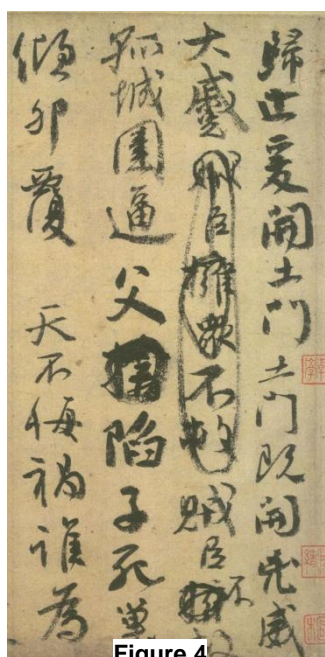 歸止爰開土門土門既開凶威
大蹙賊臣擁衆不救賊臣不
孤城圍逼父陷子死巢
傾卵覆 天不悔禍誰為
Figure 4